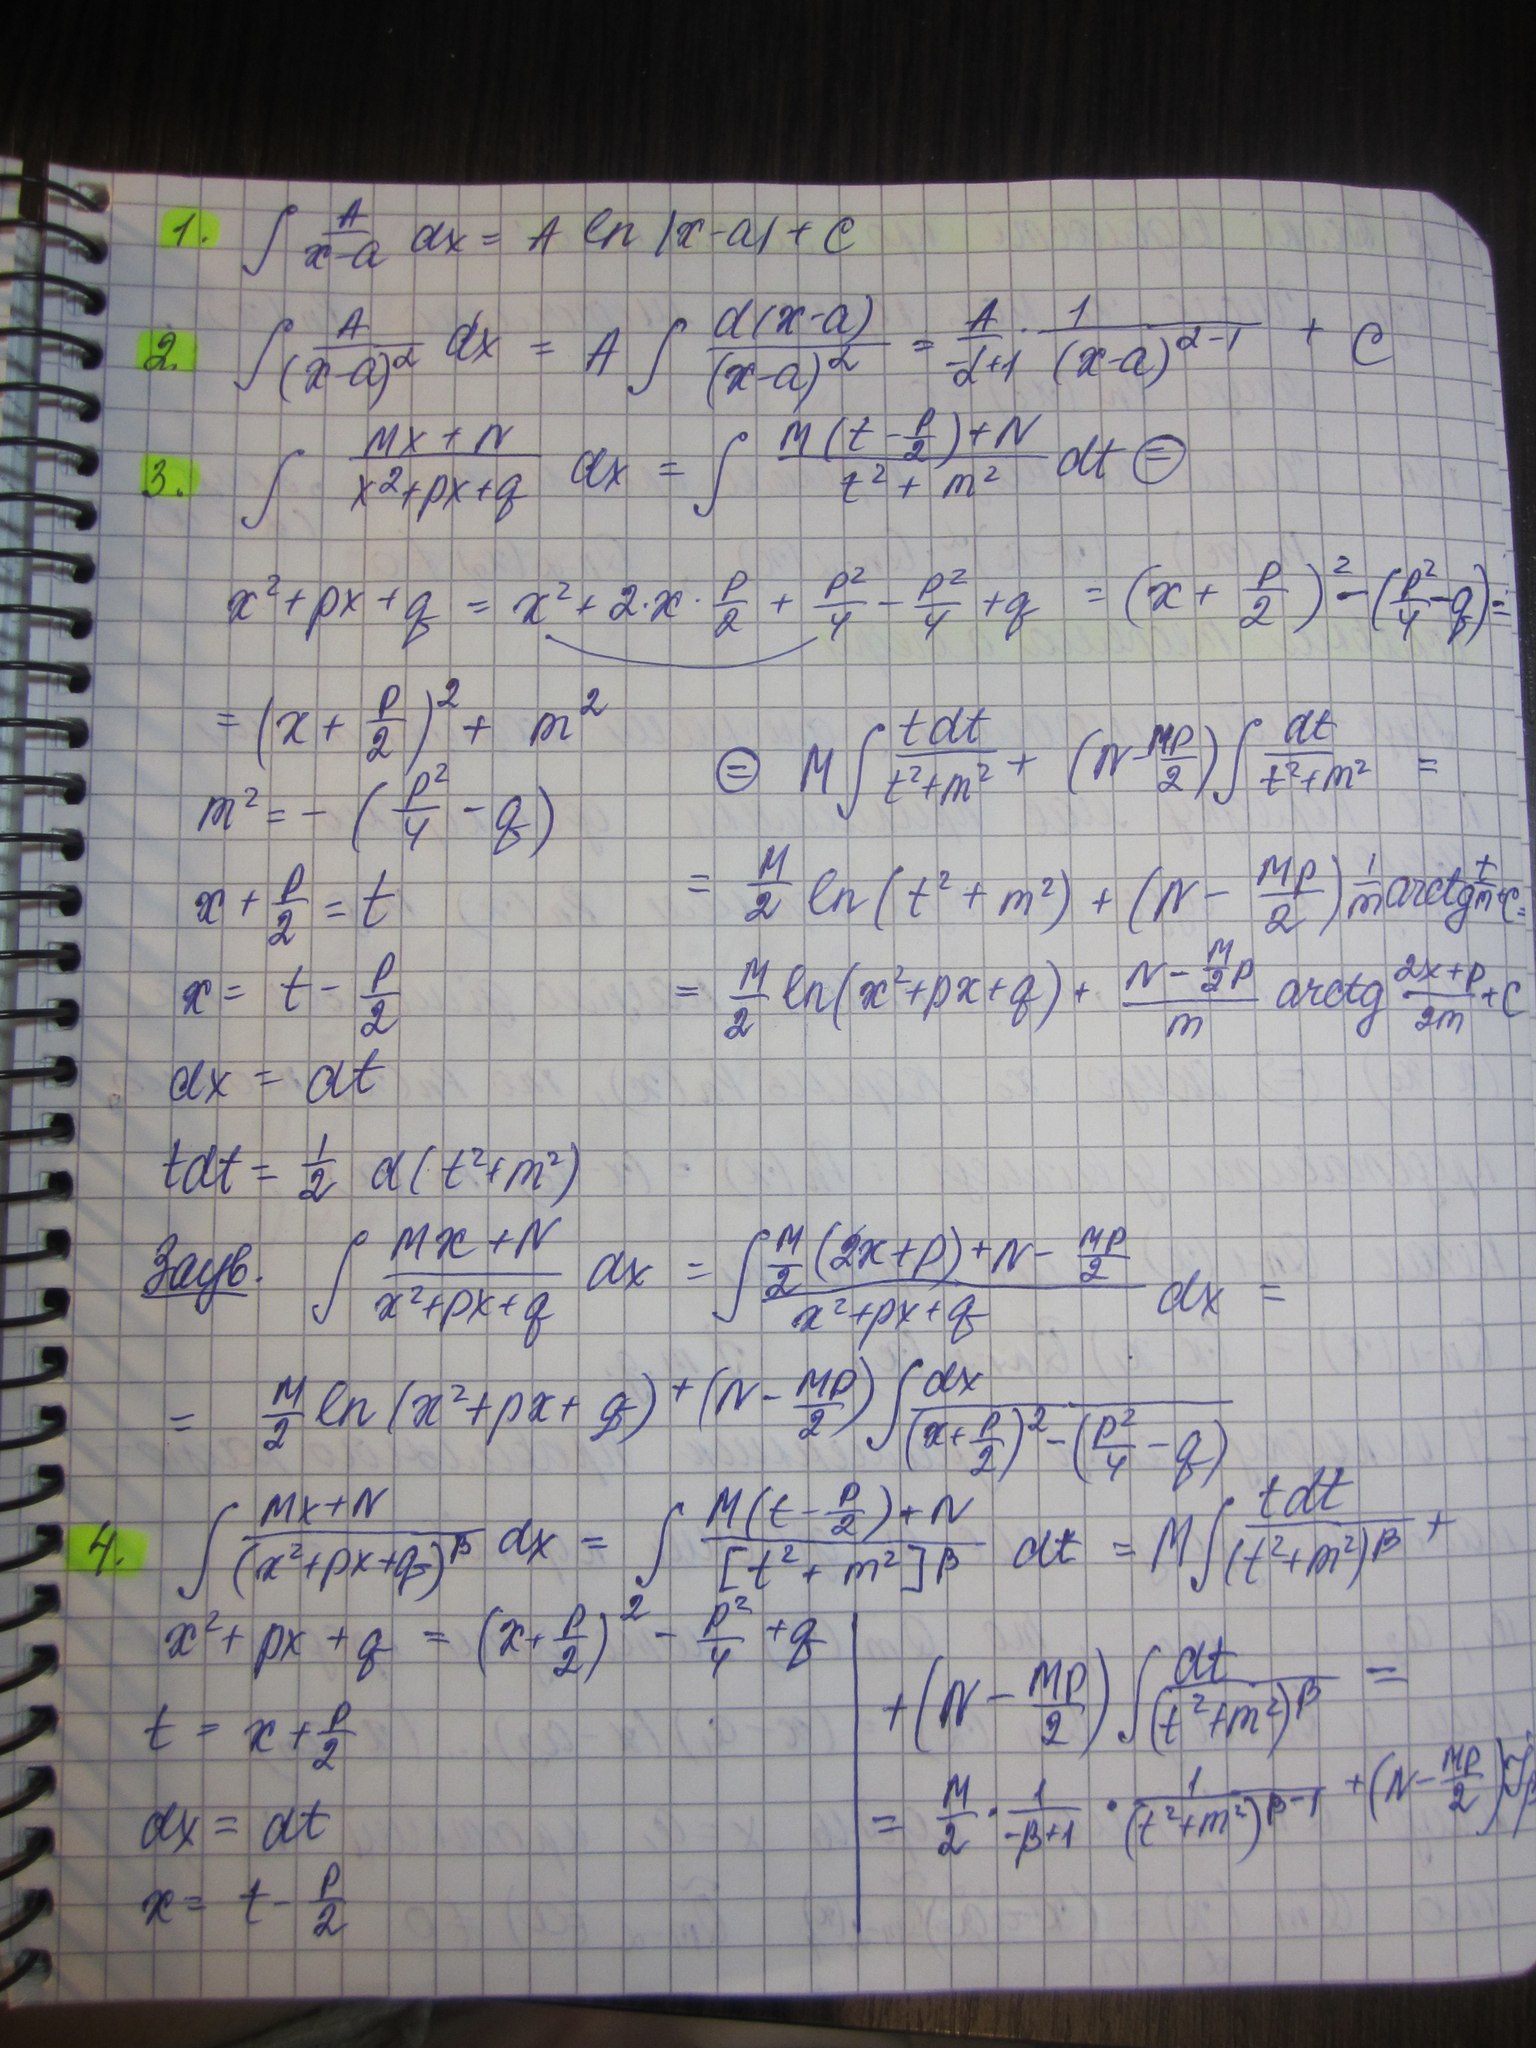 1. ∫ A/(x-a) dx = A ln |x-a| + C
2. ∫ A/(x-a)^α dx = A ∫ d(x-a)/(x-a)^α = A/(-α+1) · 1/(x-a)^(α-1) + C
3. ∫ (Mx+N)/(x²+px+q) dx = ∫ (M(t-p/2)+N)/(t²+m²) dt ⊜
x²+px+q = x²+2·x·p/2 + p²/4 - p²/4 + q = (x+p/2)² - (p²/4-q) =
= (x+p/2)² + m²
⊜ M ∫ tdt/(t²+m²) + (N-Mp/2) ∫ dt/(t²+m²) =
m² = -(p²/4-q)
= M/2 ln(t²+m²) + (N-Mp/2) 1/m arctg t/m + C =
x+p/2 = t
= M/2 ln(x²+px+q) + (N-M/2 p)/m arctg (2x+p)/2m + C
x = t-p/2
dx = dt
tdt = 1/2 d(t²+m²)
Заув. ∫ (Mx+N)/(x²+px+q) dx = ∫ (M/2(2x+p)+N-Mp/2)/(x²+px+q) dx =
= M/2 ln(x²+px+q) + (N-Mp/2) ∫ dx/((x+p/2)²-(p²/4-q))
4. ∫ (Mx+N)/(x²+px+q)^β dx = ∫ (M(t-p/2)+N)/[t²+m²]^β dt = M ∫ tdt/(t²+m²)^β +
x²+px+q = (x+p/2)² - p²/4 + q
t = x+p/2
dx = dt
x = t-p/2
+ (N-Mp/2) ∫ dt/(t²+m²)^β =
= M/2 · 1/(-β+1) · 1/(t²+m²)^(β-1) + (N-Mp/2)